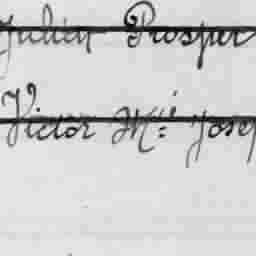 Julien Prosper
Victor Mie Josep